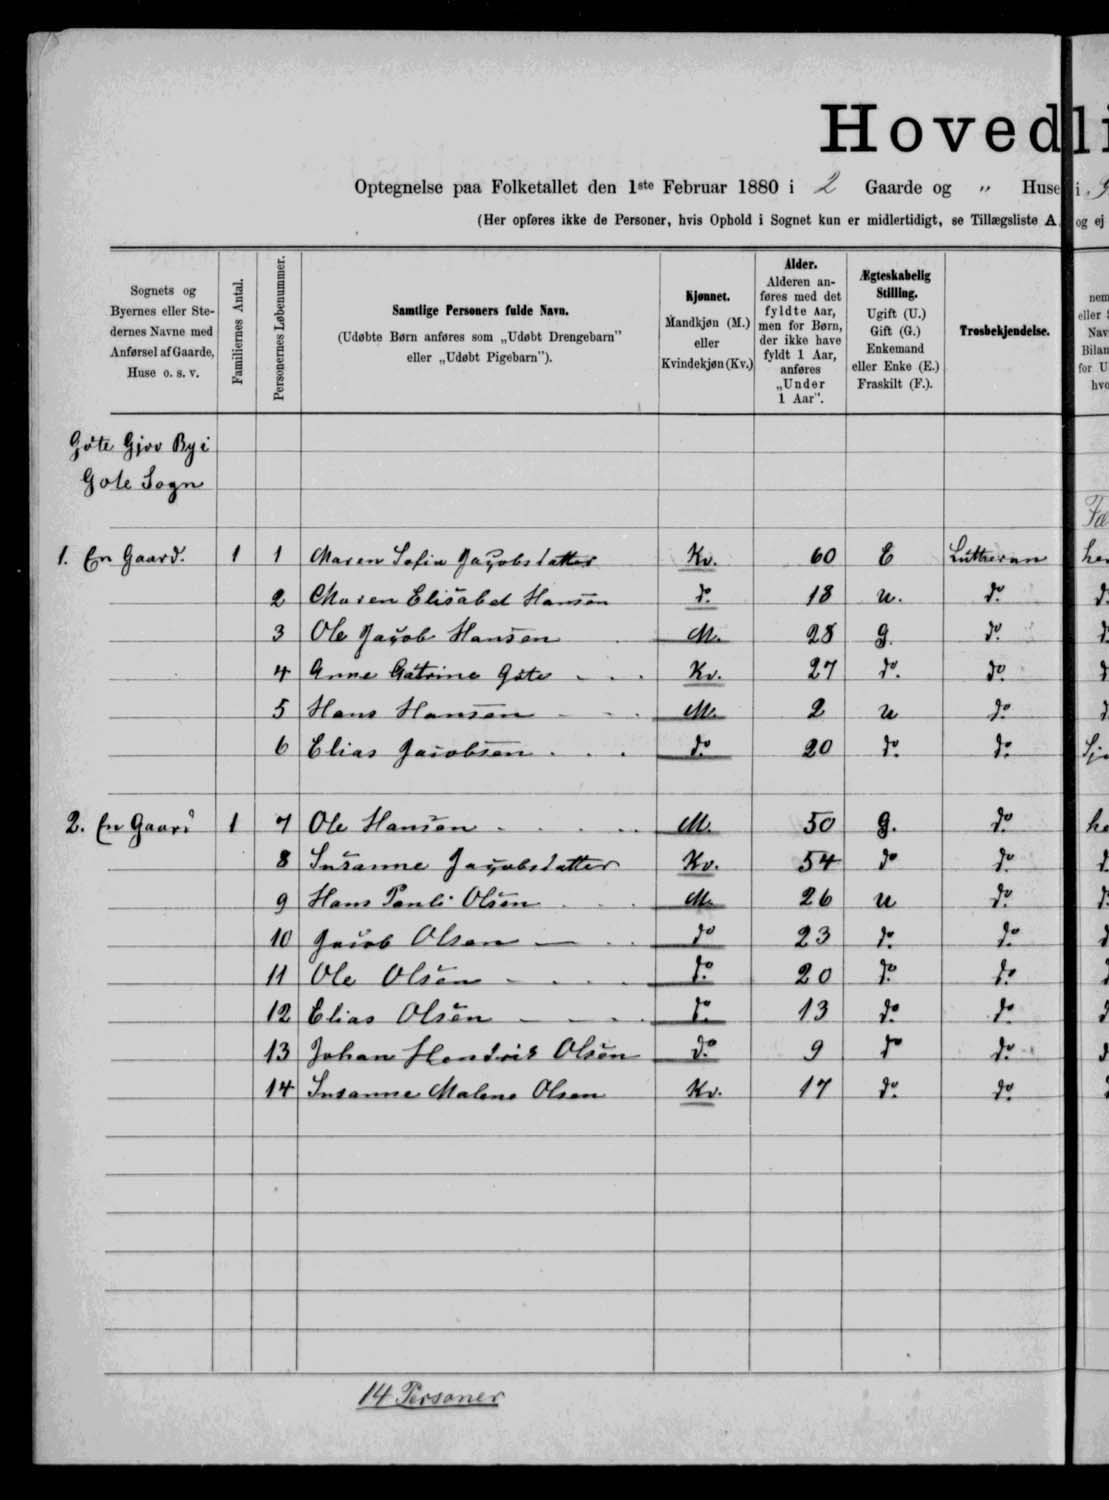 Hovedli
Optegnelse paa Folketallet den 1ste Februar 1880 i 2 Gaarde og „ Huse i
(Her opføres ikke de Personer, hvis Ophold i Sognet kun er midlertidigt, se Tillægsliste A og ej
Sognets og Byernes eller Stedernes Navne med Anførsel af Gaarde, Huse o. s. v.
Familiernes Antal.
Personernes Løbenummer.
Samtlige Personers fulde Navn.
(Udøbte Børn anføres som „Udøbt Drengebarn” eller „Udøbt Pigebarn”).
Kjønnet.
Mandkjøn (M.) eller Kvindekjøn (Kv.)
Alder.
Alderen anføres med det fyldte Aar, men for Børn, der ikke have fyldt 1 Aar, anføres „Under 1 Aar”.
Ægteskabelig Stilling.
Ugift (U.) Gift (G.) Enkemand eller Enke (E.) Fraskilt (F.).
Trosbekjendelse.
Göte Gjov By i
Gote Sogn
1. En Gaard. 1 1 Maren Sofia Jacobsdatter Kv. 60 E Lutheran
2 Maren Elisabet Hansen do. 18 u. do.
3 Ole Jacob Hansen M. 28 g. do.
4 Anne Catrine Göte Kv. 27 do. do.
5 Hans Hansen M. 2 u do
6 Elias Jacobsen do 20 do. do.
2. En Gaard 1 7 Ole Hansen M. 50 g. do
8 Susanne Jacobsdatter Kv. 54 do do.
9 Hans Pauli Olsen M. 26 u do.
10 Jacob Olsen do 23 do. do.
11 Ole Olsen do. 20 do. do.
12 Elias Olsen do. 13 do. do.
13 Johan Hendrik Olsen do. 9 do do.
14 Susanne Malene Olsen Kv. 17 do. do.
14 Personer